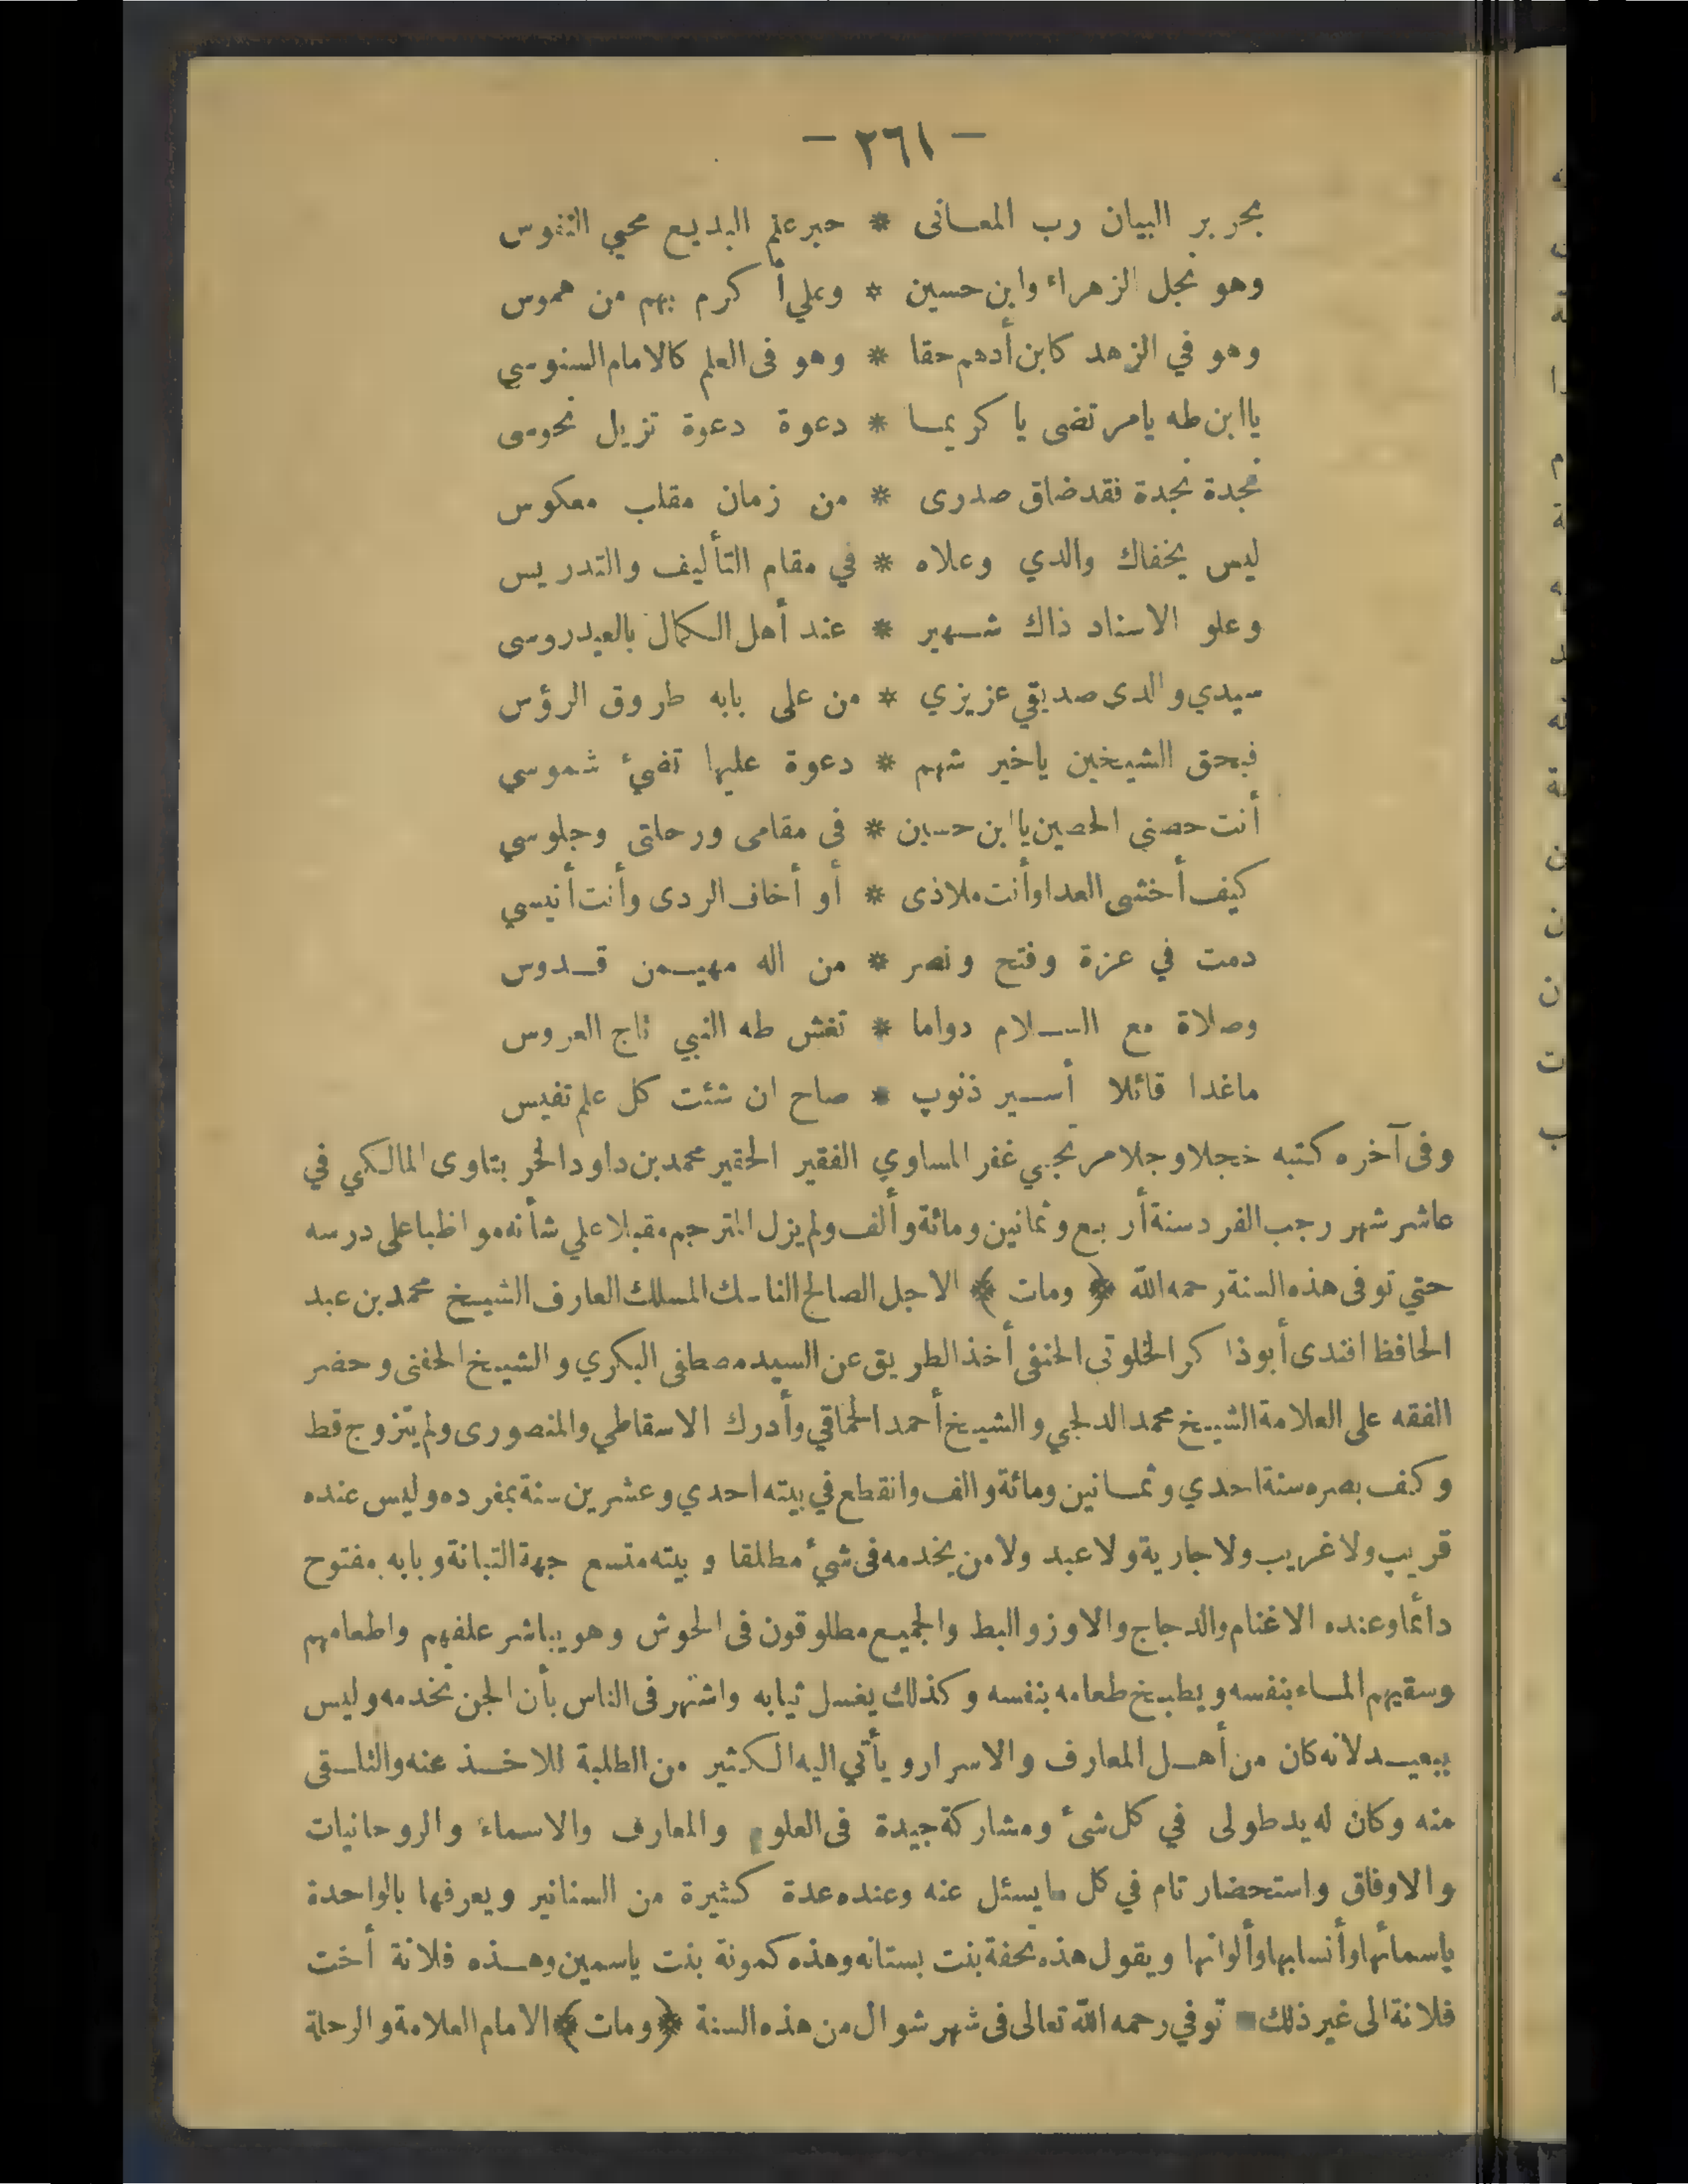 — ٢٦١ —
بحر بر البيان رب المعانى * حبر علم البديع محيي النفوس
وهو نجل الزهراء وابن حسين * وعلي أكرم بهم من هموس
وهو في الزهد كابن أدهم حقا * وهو فى العلم كالامام السنوسي
يا ابن طه يامرتضى يا كريما * دعوة دعوة تزيل نحوسى
نجدة نجدة فقد ضاق صدرى * من زمان مقلب معكوس
ليس يخفاك والدي وعلاه * في مقام التأليف والتدريس
وعلو الاسناد ذاك شهير * عند أهل الكمال بالعيدروسى
سيدي والدى صديقي عزيزي * من على بابه طروق الرؤس
فبحق الشيخين ياخير شهم * دعوة عليها تضئ شموسي
أنت حصنى الحصين يا ابن حسين * فى مقامى ورحلتى وجلوسي
كيف أخشى العدا وأنت ملاذى * أو أخاف الردى وأنت أنيسي
دمت في عزة وفتح ونصر * من اله مهيمن قدوس
وصلاة مع السلام دواما * تغش طه النبي تاج العروس
ماغدا قائلا أسير ذنوب * صاح ان شئت كل علم نفيس
وفى آخره كتبه خجلا وجلا مرتجي غفر المساوي الفقير الحقير محمد بن داود الخر بتاوى المالكي في
عاشر شهر رجب الفرد سنة أربع وثمانين ومائة وألف ولم يزل المترجم مقبلا علي شأنه مواظبا على درسه
حتي توفى هذه السنة رحمه الله ﴿ ومات ﴾ الاجل الصالح الناسك المسلك العارف الشيخ محمد بن عبد
الحافظ افندى أبو ذاكر الخلوتى الحنفى أخذ الطريق عن السيد مصطفى البكري والشيخ الحفنى وحضر
الفقه على العلامة الشيخ محمد الدلجي والشيخ أحمد الحماقي وأدرك الاسقاطي والمنصورى ولم يتزوج قط
وكف بصره سنة احدي وثمانين ومائة والف وانقطع في بيته احدي وعشرين سنة بمفرده وليس عنده
قريب ولا غريب ولا جارية ولا عبد ولا من يخدمه فى شئ مطلقا وبيته متسع جهة التبانة وبابه مفتوح
دائما وعنده الاغنام والدجاج والاوز والبط والجميع مطلوقون فى الحوش وهو يباشر علفهم واطعامهم
وسقيهم الماء بنفسه ويطبخ طعامه بنفسه وكذلك يغسل ثيابه واشتهر فى الناس بأن الجن تخدمه وليس
ببعيد لانه كان من أهل المعارف والاسرار ويأتي اليه الكثير من الطلبة للاخذ عنه والتلقى
منه وكان له يد طولى في كل شئ ومشاركة جيدة فى العلوم والمعارف والاسماء والروحانيات
والاوفاق واستحضار تام في كل ما يسئل عنه وعنده عدة كثيرة من السنانير ويعرفها بالواحدة
باسمائها وأنسابها وألوانها ويقول هذه تحفة بنت بستانه وهذه كمونة بنت ياسمين وهذه فلانة أخت
فلانة الى غير ذلك توفي رحمه الله تعالى فى شهر شوال من هذه السنة ﴿ ومات ﴾ الامام العلامة والرحلة